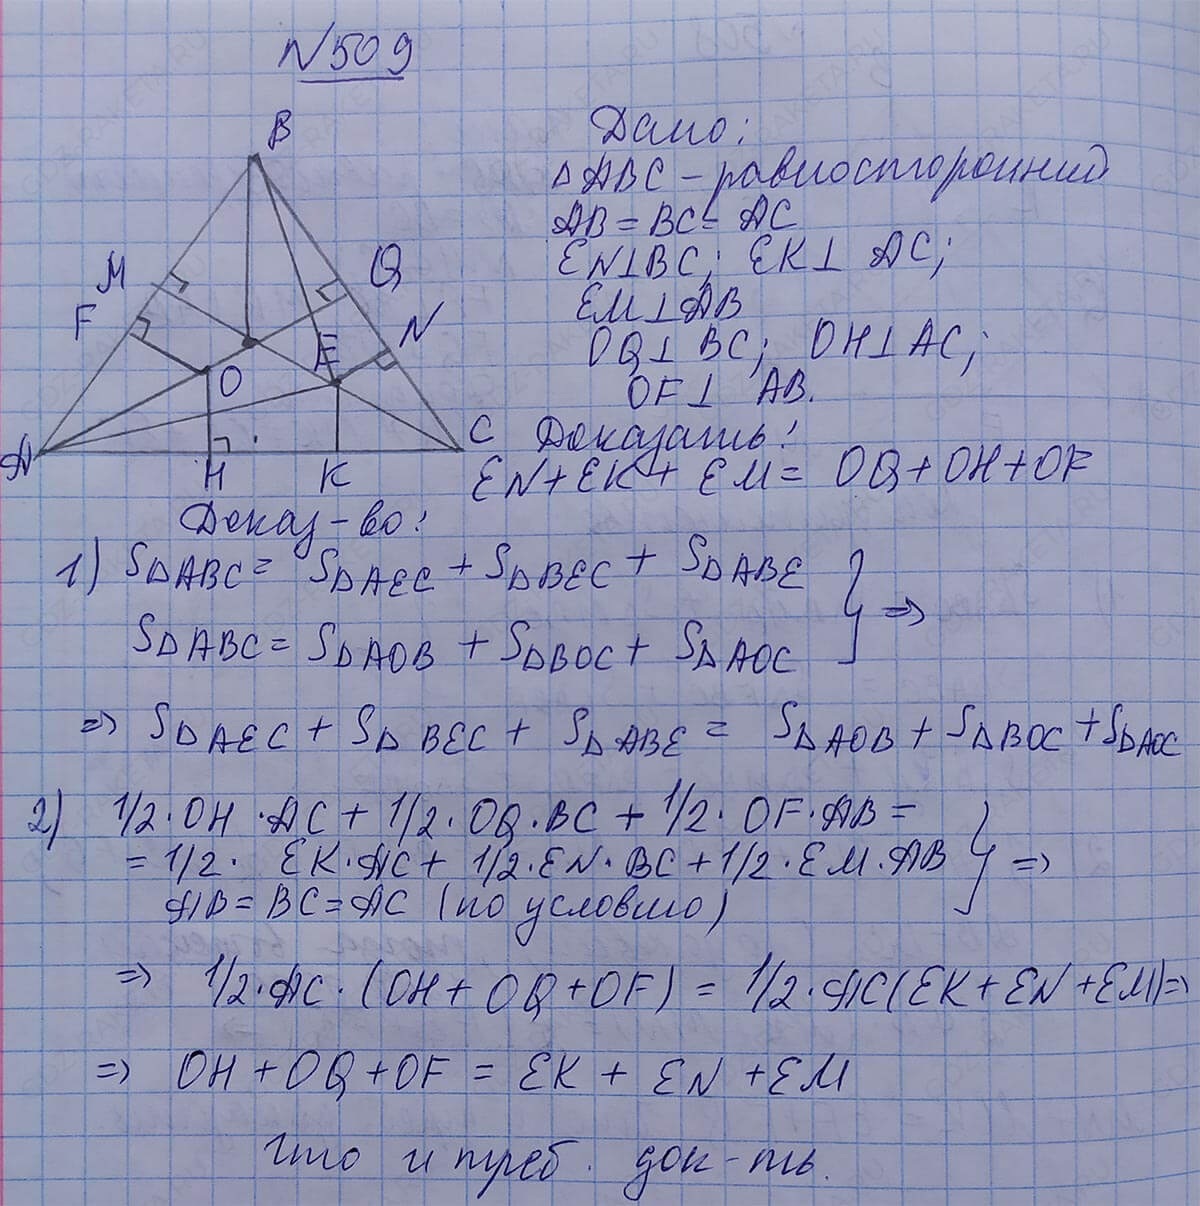 №509
B
M
F
Q
N
E
O
A
C
H
K
Дано:
ΔABC – равносторонний
AB = BC = AC
EN⊥BC; EK⊥ AC;
EM⊥AB
OQ⊥ BC; OH⊥AC;
OF⊥ AB.
Доказать:
EN+EK+ EM= OQ+OH+OF
Доказ-во:
1) SΔABC= SΔAEC + SΔBEC + SΔABE } =>
SΔABC= SΔAOB + SΔBOC+ SΔAOC
=> SΔAEC + SΔBEC + SΔABE = SΔAOB + SΔBOC +SΔAOC
2) 1/2·OH·AC+1/2·OQ·BC + 1/2·OF·AB =
=1/2· EK·AC+ 1/2·EN·BC+1/2·EM·AB } =>
AB=BC=AC (по условию)
=> 1/2·AC·(OH+OQ+OF) = 1/2·AC(EK+EN+EM)=>
=> OH+OQ+OF = EK + EN +EM
что и треб. док-ть.